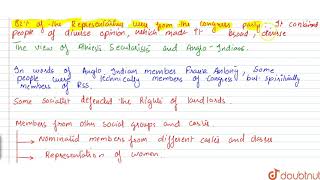 82% of the Representatives were from the congress party. It contained
people of diverse opinion, which made it broad, diverse
The view of Athiests Secularists and Anglo-Indians.
In words of Anglo Indian member Frank Anthony, Some
people were technically members of congress but spiritually
members of RSS.
Some socialist defended the Rights of landlords.
Members from other social groups and castes
Nominated members from different castes and classes
Representation of women
doubtnut